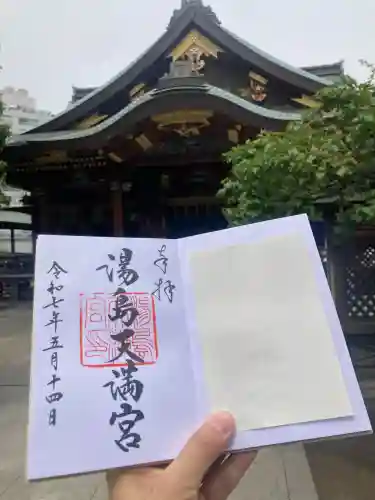 奉拝
湯島天満宮
令和七年五月十四日